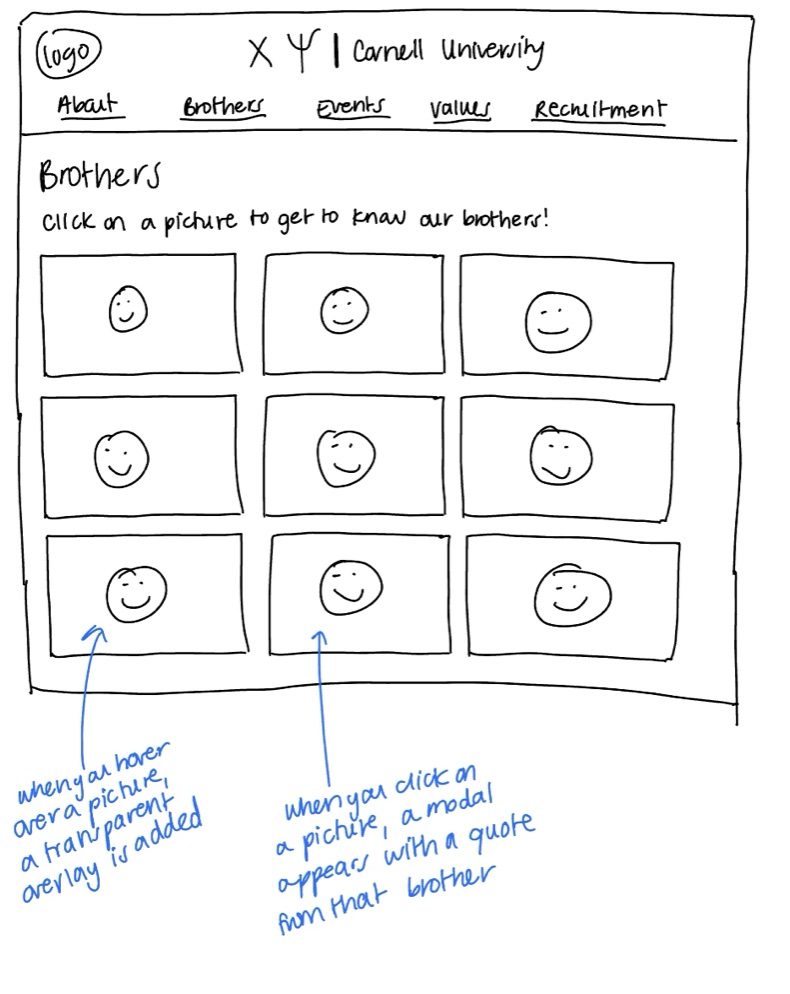 logo
Χ Ψ | Cornell University
About Brothers Events Values Recruitment
Brothers
Click on a picture to get to know our brothers!
when you hover
over a picture,
a transparent
overlay is added
when you click on
a picture, a modal
appears with a quote
from that brother